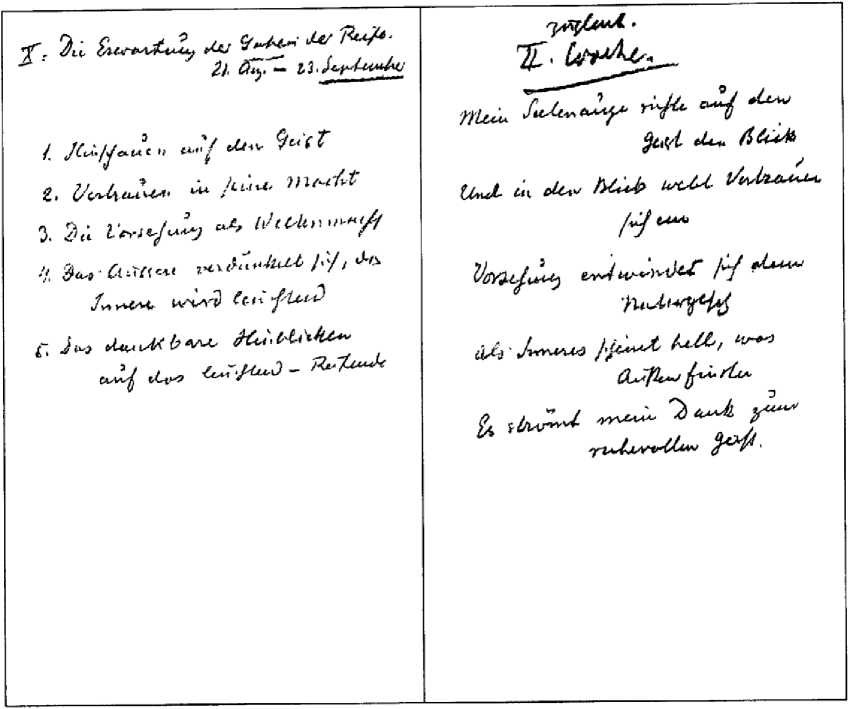 X: Die Erwartung der Gaben der Reife.
21. Aug. – 23. September
1. Hinschauen auf den Geist
2. Vertrauen in seine Macht
3. Die Vorsehung als Weltenmacht
4. Das Äussere verdunkelt sich, das
Innere wird leuchtend
5. Das dankbare Hinblicken
auf das leuchtend – Reifende
II. Woche.
Mein Seelenauge richte auf den
Geist den Blick
Und in den Blick webt Vertrauen
sich ein
Vorsehung entwindet sich dem
Naturgesetz
Als Inneres scheinet hell, was
Außen finster
Es strömt mein Dank zum
ruhevollen Geist.